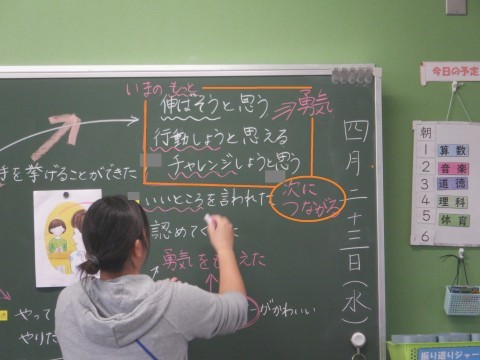 四月二十三日(水)
いまの もっと
伸ばそうと思う
行動しようと思える
チャレンジしようと思う
勇気
いいところを言われた
次に
つながる
認めて
手を挙げることができた
勇気をもらえた
がかわいい
やって
やりた
今日の予定
朝
1 算数
2 音楽
3 道徳
4 理科
5 体育
6
振り返りジャー